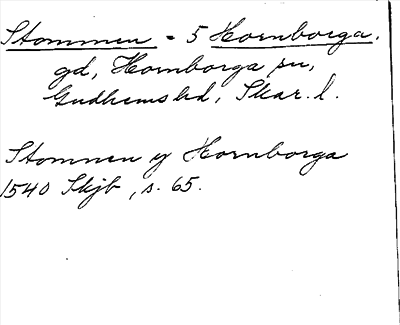 Stommen - 5 Hornborga.
gd, Hornborga sn,
Gudhems hd, Skar. l.
Stommen y Hornborga
1540 Skjb, s. 65.